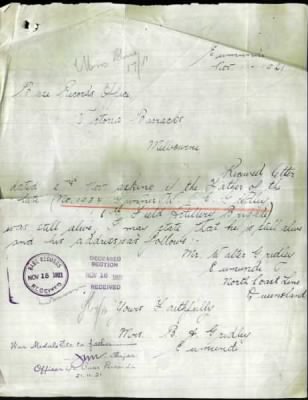 Miss Blair
17/11
Eumundi
Nov 1921
Base Records Office
Victoria Barracks
Melbourne
Received letter
dated 2nd Nov asking if the Father of the
late (No.
Gunner
Field Artillery Brigade)
was still alive, I may state that he is still alive
and his address as follows:-
Mr. Walter Gridley
Eumundi
North Coast Line
Queensland
BASE RECORDS
NOV 16 1921
RECEIVED
DECEASED
SECTION
NOV 16 1921
BASE RECORDS
Yours Faithfully
Mrs. B. A. Gridley
Eumundi
War Medals etc to father
Major
Officer i/c Base Records
21.11.21